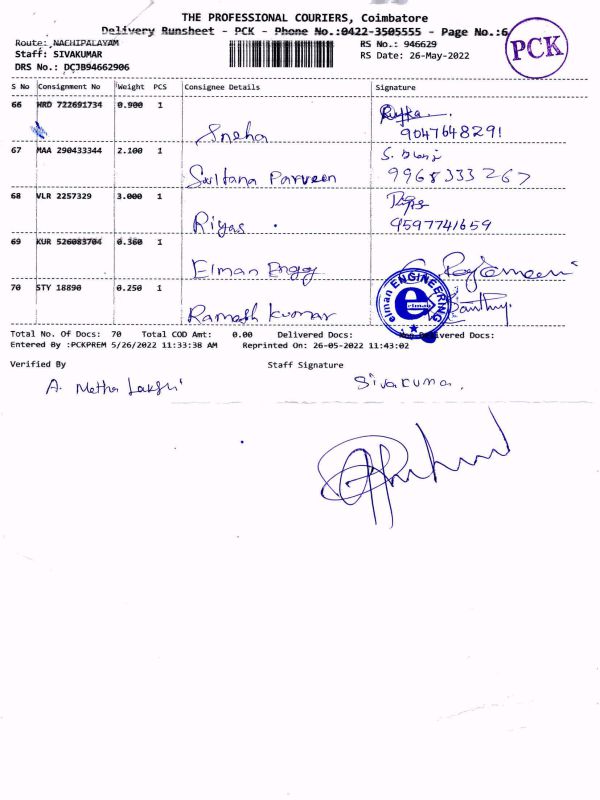 THE PROFESSIONAL COURIERS, Coimbatore
Delivery Runsheet - PCK - Phone No.:0422-3505555 - Page No.:6
PCK
Route: NACHIPALAYAM
RS No.: 946629
Staff: SIVAKUMAR
RS Date: 26-May-2022
DRS No.: DCJB94662906
S No Consignment No Weight PCS Consignee Details Signature
66 MRD 722691734 0.900 1
Sneha 9047648291
67 MAA 290433344 2.100 1
Sultana Parveen 9968333267
68 VLR 2257329 3.000 1
Riyas 9597741659
69 KUR 526083704 0.360 1
Elman Engg
elman ENGINEERING
e
elman
70 STY 18890 0.250 1
Ramesh kumar
Total No. Of Docs: 70 Total COD Amt: 0.00 Delivered Docs: Non Delivered Docs:
Entered By :PCKPREM 5/26/2022 11:33:38 AM Reprinted On: 26-05-2022 11:43:02
Verified By Staff Signature
A. Sivakuma.